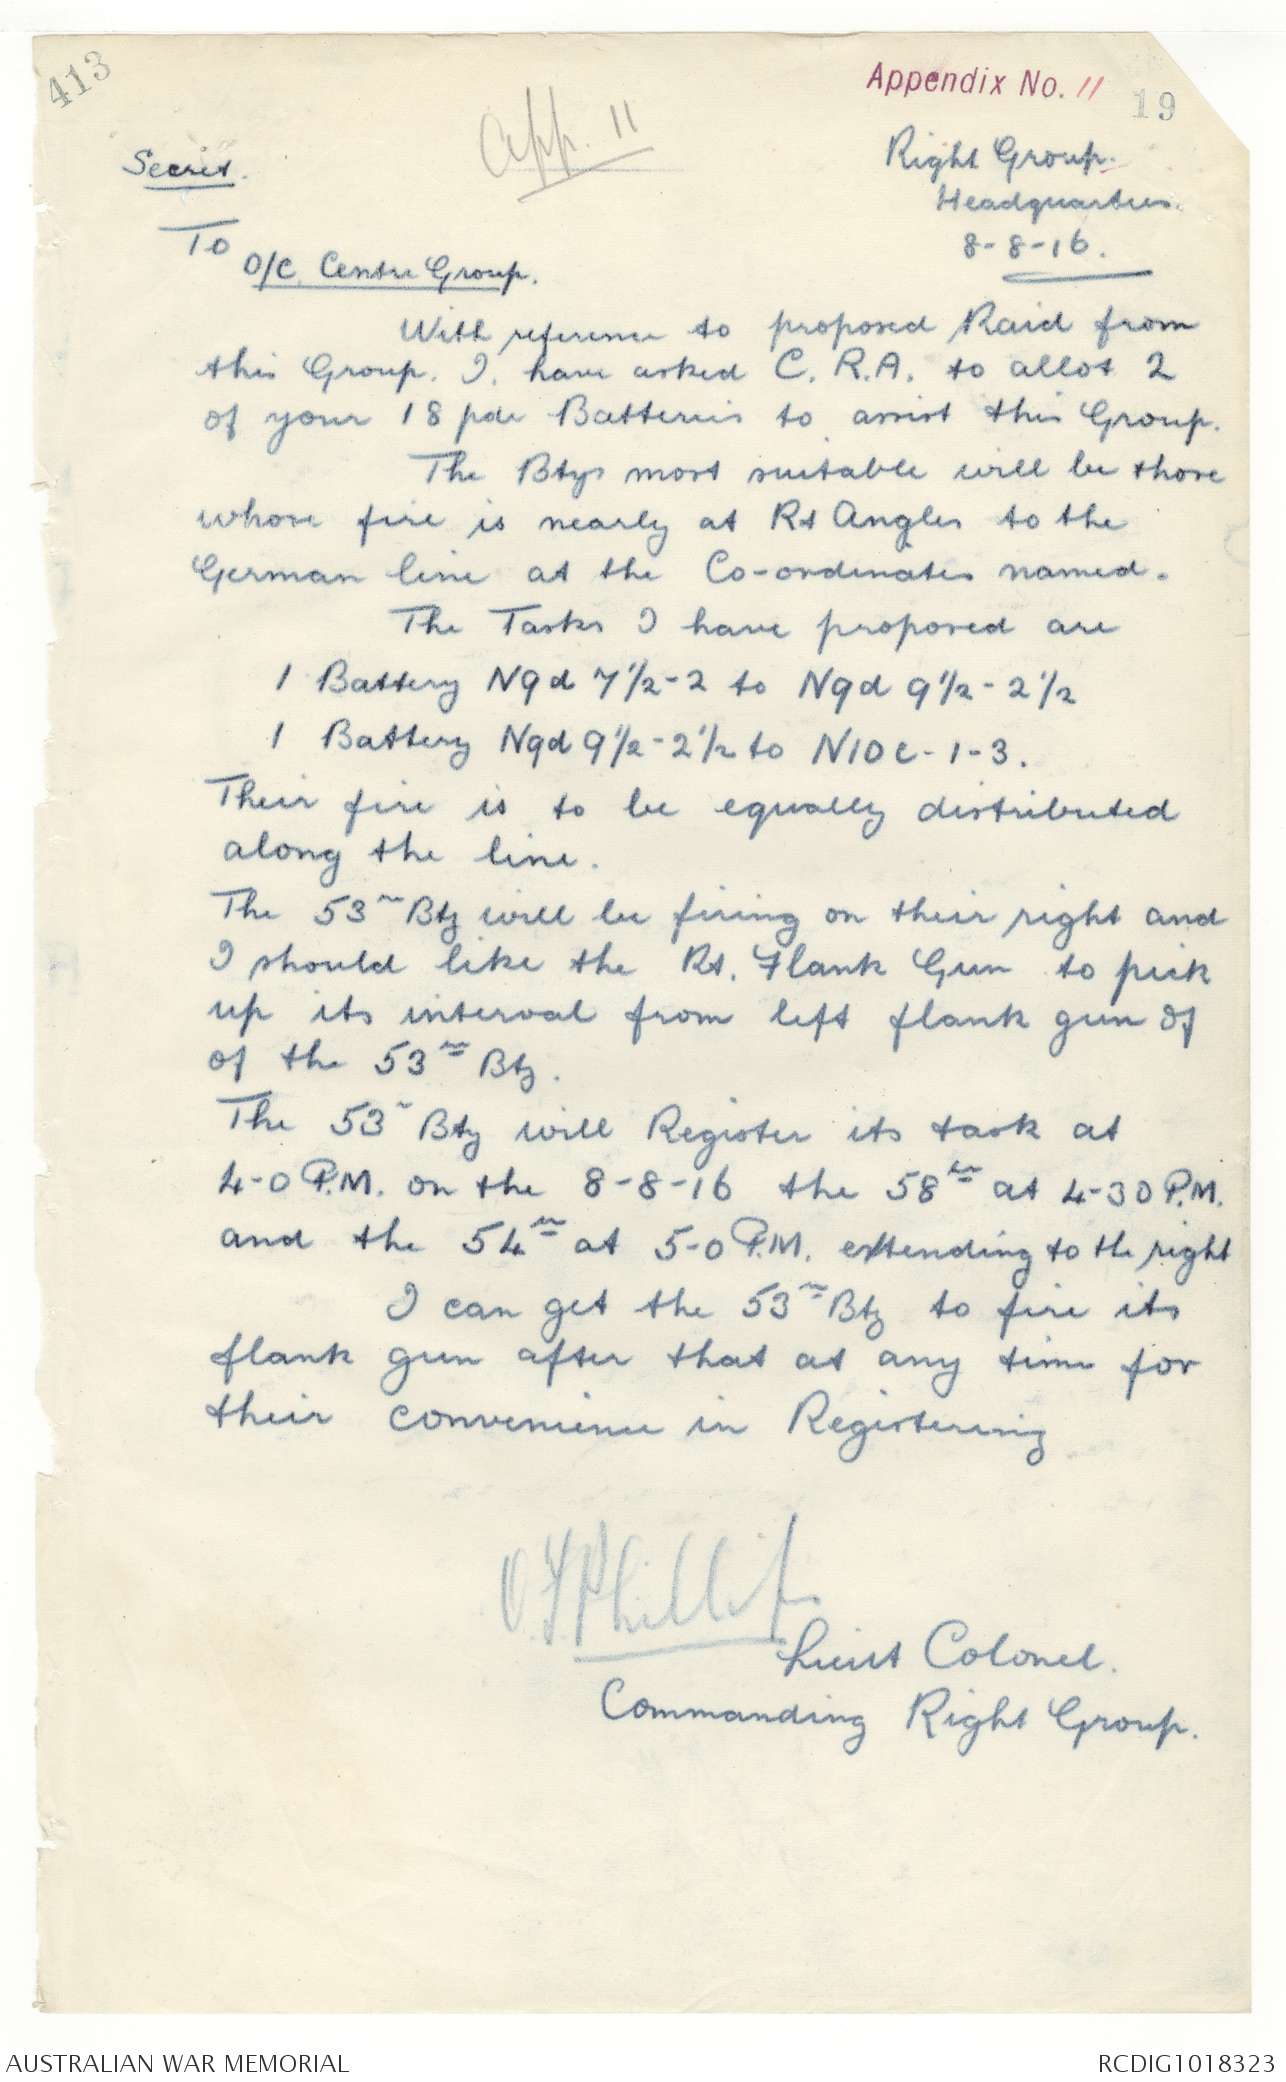 413
Appendix No. 11
19
App. 11
Secret.
Right Group.
Headquarters.
8-8-16.
To
O/C. Centre Group.
With reference to proposed Raid from
this Group. I. have asked C. R.A. to allot 2
of your 18 pdr Batteries to assist this Group.
The Btys most suitable will be those
whose fire is nearly at Rt Angles to the
German line at the Co-ordinates named.
The Tasks I have proposed are
1 Battery N9d 7½-2 to N9d 9½-2½
1 Battery N9d 9½-2½ to N10c-1-3.
Their fire is to be equally distributed
along the line.
The 53rd Bty will be firing on their right and
I should like the Rt. Flank Gun to pick
up its interval from left flank gun of
of the 53rd Bty.
The 53rd Bty will Register its task at
4-0 P.M. on the 8-8-16 the 58th at 4-30 P.M.
and the 54th at 5-0 P.M. extending to the right
I can get the 53rd Bty to fire its
flank gun after that at any time for
their convenience in Registering
O.F. Phillips
Lieut Colonel.
Commanding Right Group.
AUSTRALIAN WAR MEMORIAL
RCDIG1018323